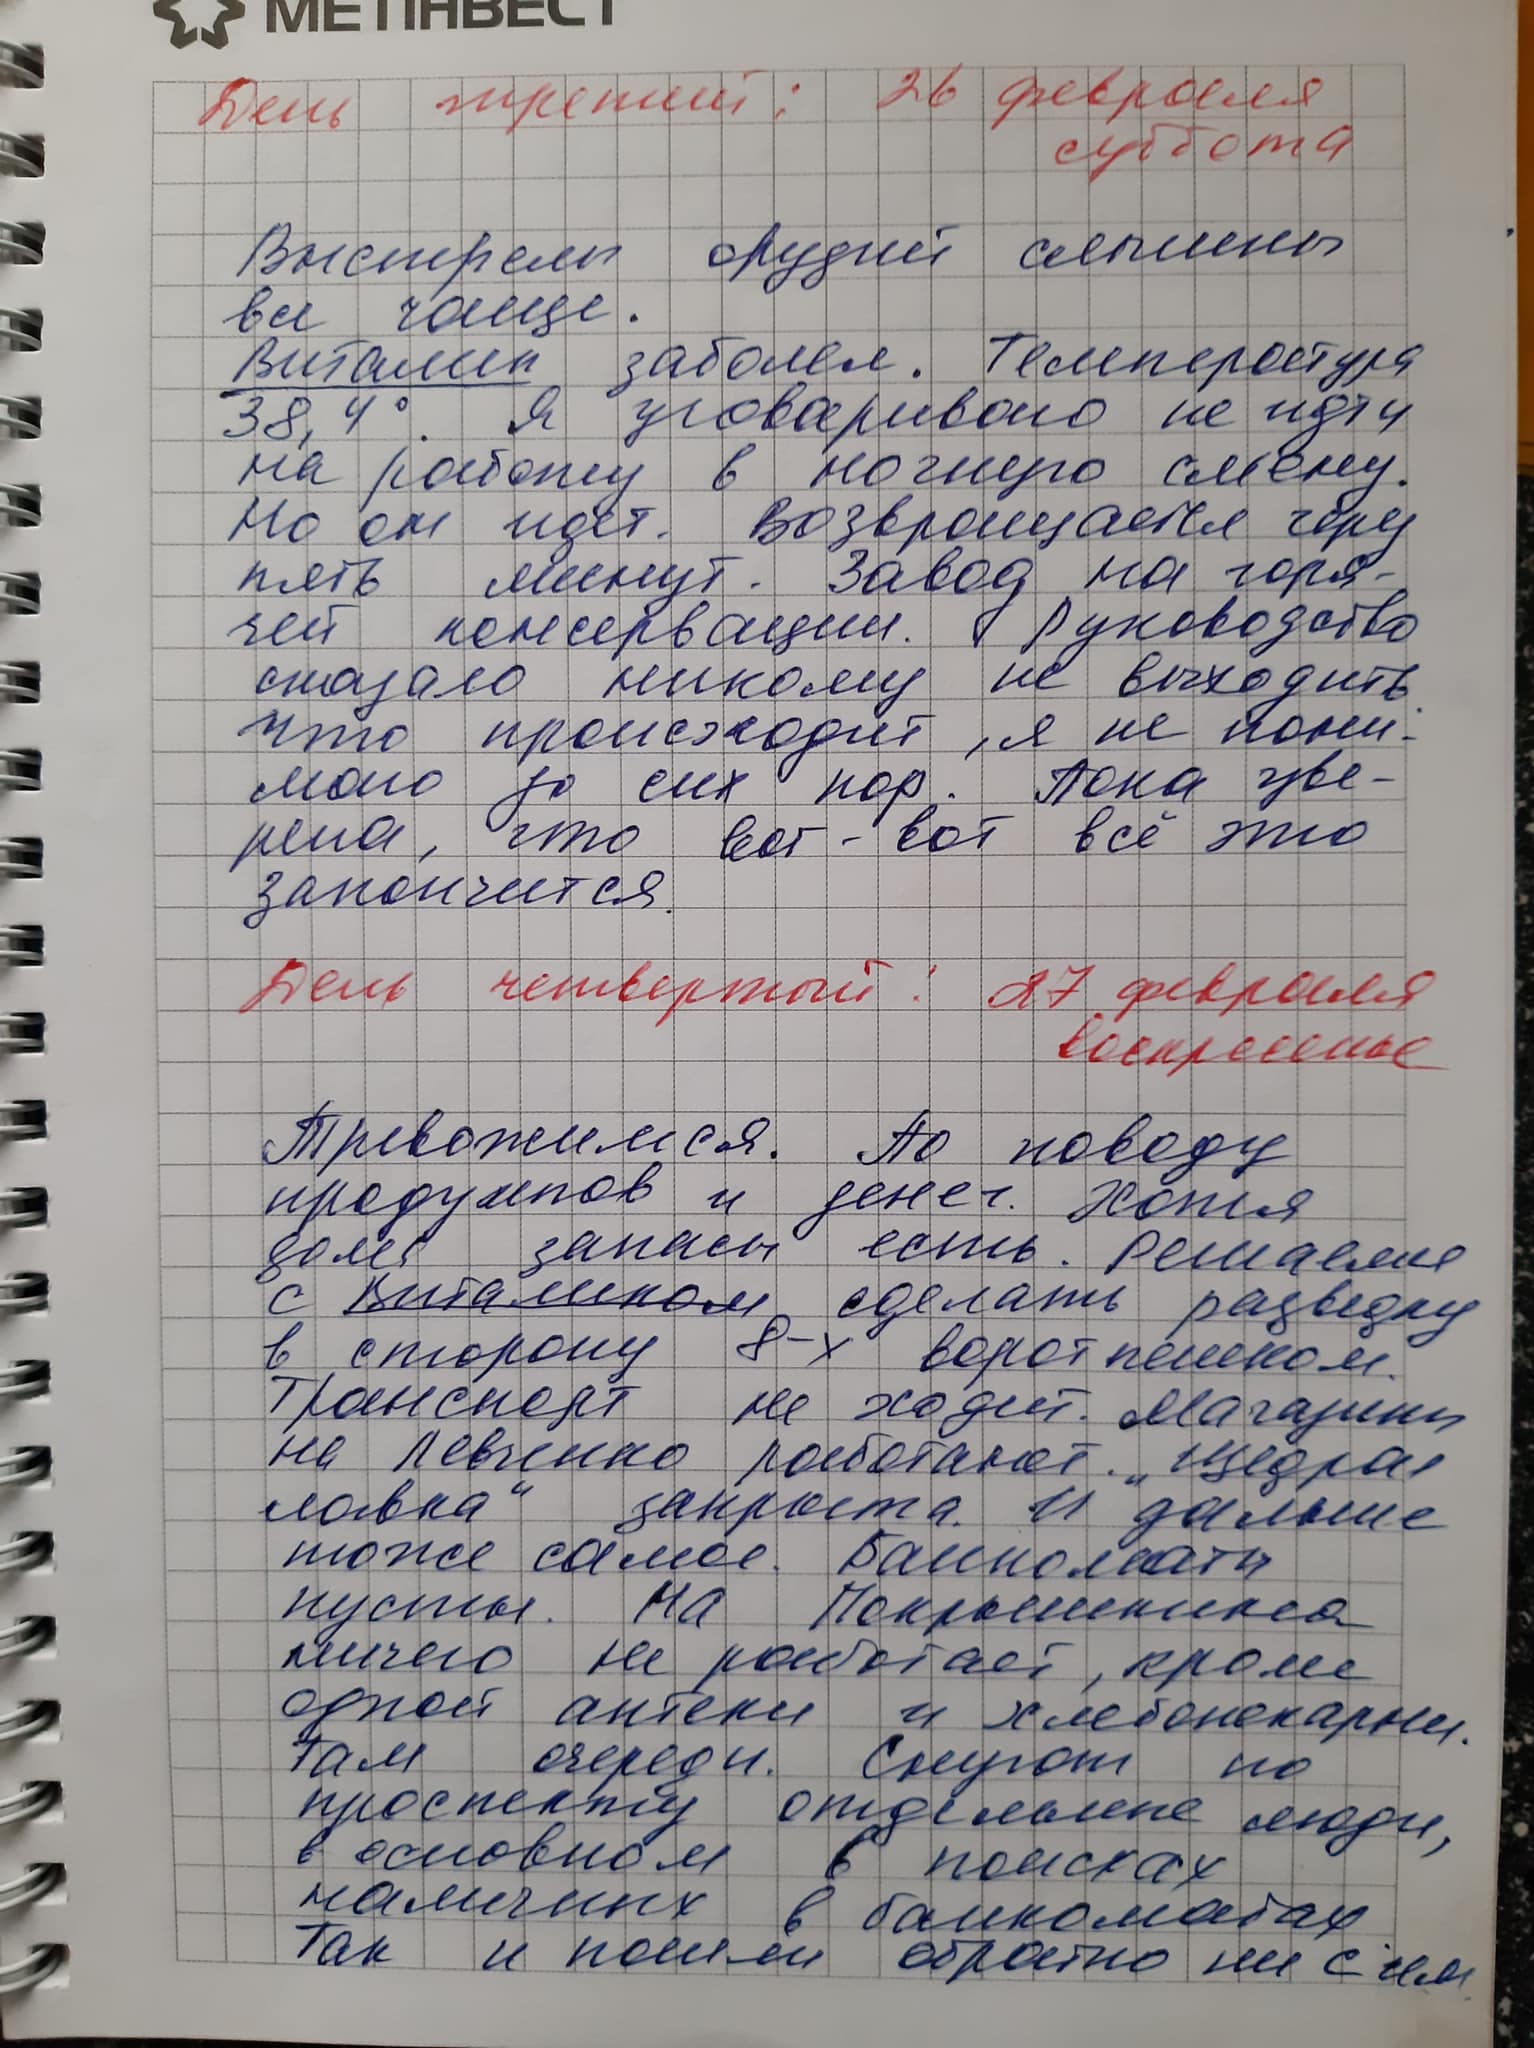 МЕТІНВЕСТ
День третий: 26 февраля
суббота
Выстрелы орудий слышны
все чаще.
Виталик заболел. Температура
38,4°. Я уговариваю не идти
на работу в ночную смену.
Но он идет. Возвращается через
пять минут. Завод на горя-
чей консервации. Руководство
сказало никому не выходить.
Что происходит, я не пони-
маю до сих пор. Пока уве-
рена, что вот-вот всё это
закончится.
День четвертый: 27 февраля
воскресенье
Тревожимся. По поводу
продуктов и денег. Хотя
дома запасы есть. Решаем
с Виталиком сделать разведку
в сторону 8-х ворот пешком.
Транспорт не ходит. Магазины
на Левченко работают. „Щедрая
лавка“ закрыта. И дальше
тоже самое. Банкоматы
пусты. На Покрышкина
ничего не работает, кроме
одной аптеки и хлебопекарни.
Там очереди. Снуют по
проспекту отдельные люди,
в основном в поисках
наличных в банкоматах
Так и пошли обратно ни с чем.